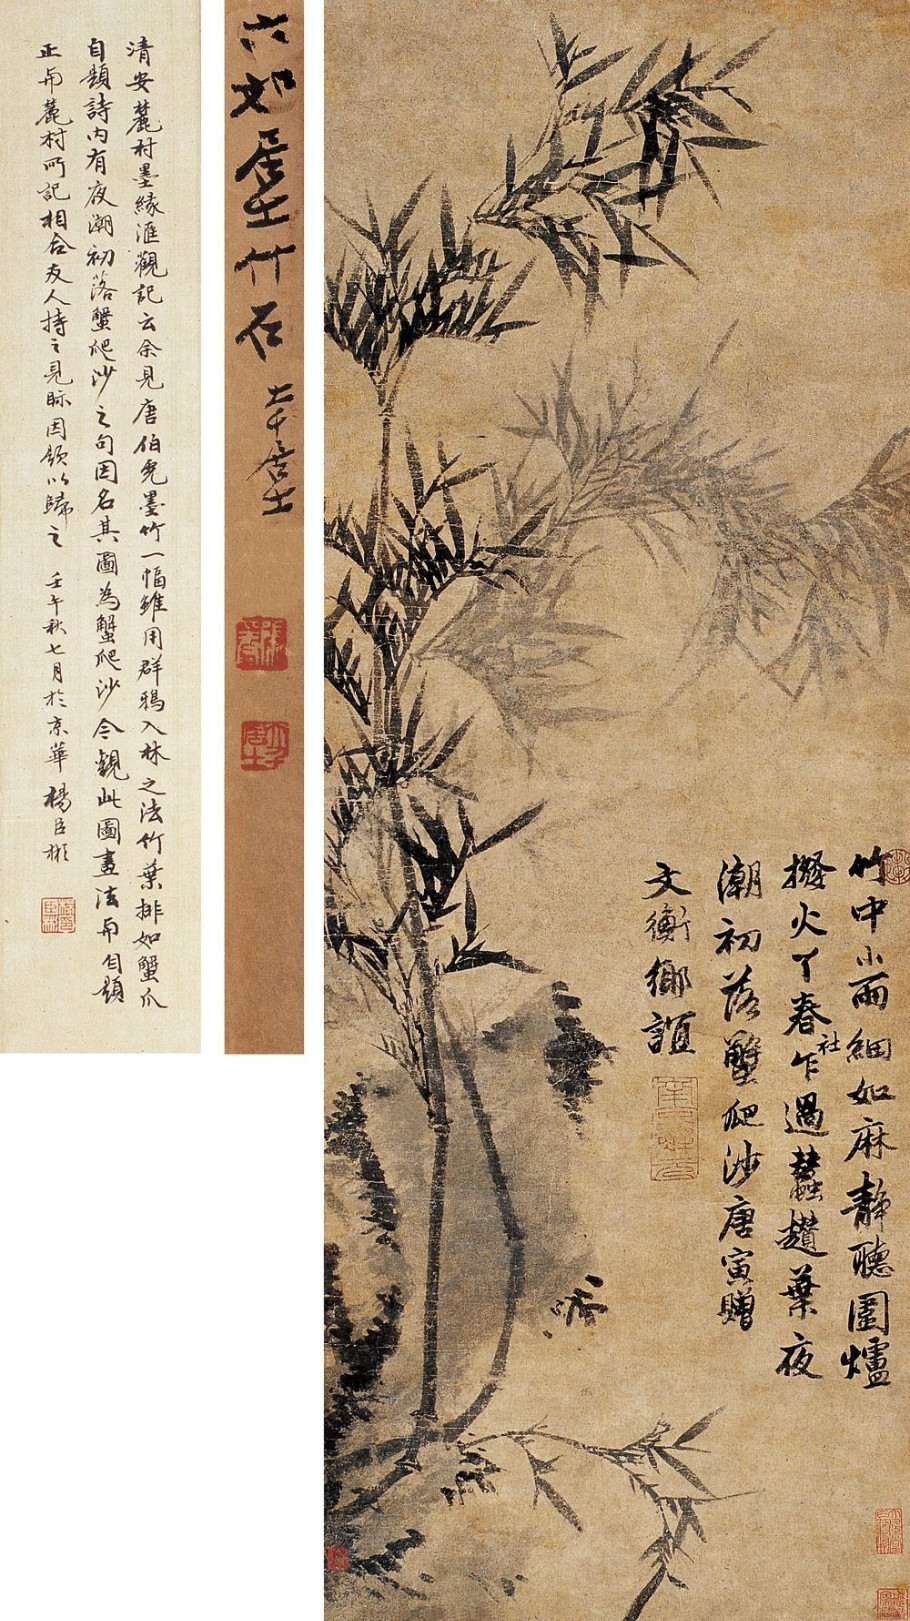 竹中小雨細如麻靜聽圍爐
撥火丫春乍過蠶攢葉夜
社
潮初落蟹爬沙唐寅贈
文衡鄉誼
六如居士竹石
大千居士
清安麓村墨緣滙觀記云余見唐伯虎墨竹一幅雖用群鴉入林之法竹葉排如蟹爪
自題詩內有夜潮初落蟹爬沙之句因名其圖為蟹爬沙今觀此圖畫法與自題
正與麓村所記相合友人持之見眎因題以歸之 壬午秋七月於京華 楊臣彬